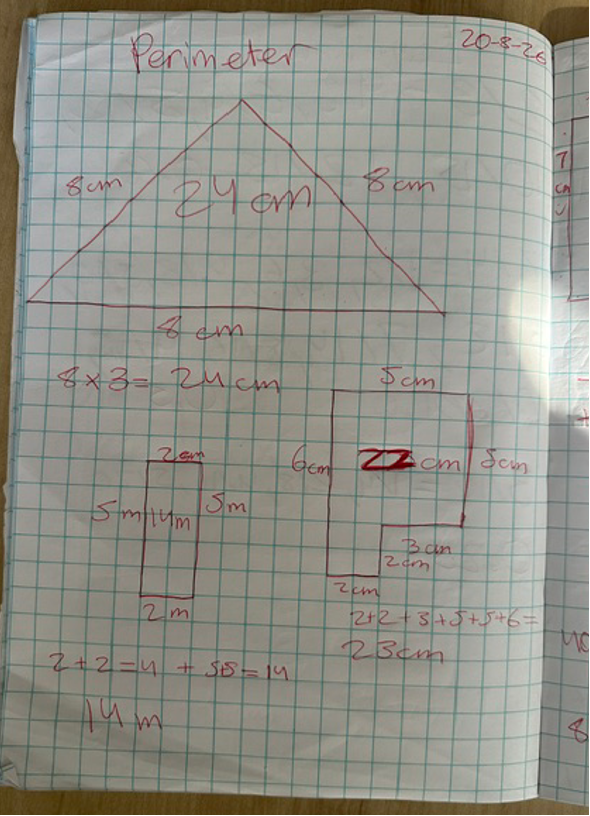 Perimeter
20-8-26
8cm
24 cm
8cm
8 cm
8 x 3 = 24 cm
5cm
6cm
22 cm
5cm
3cm
2cm
2cm
2+2+3+5+5+6=
23cm
2cm
5m
14m
5m
2m
2+2=4 + 5+5=14
14m
7
cm
+
40
8